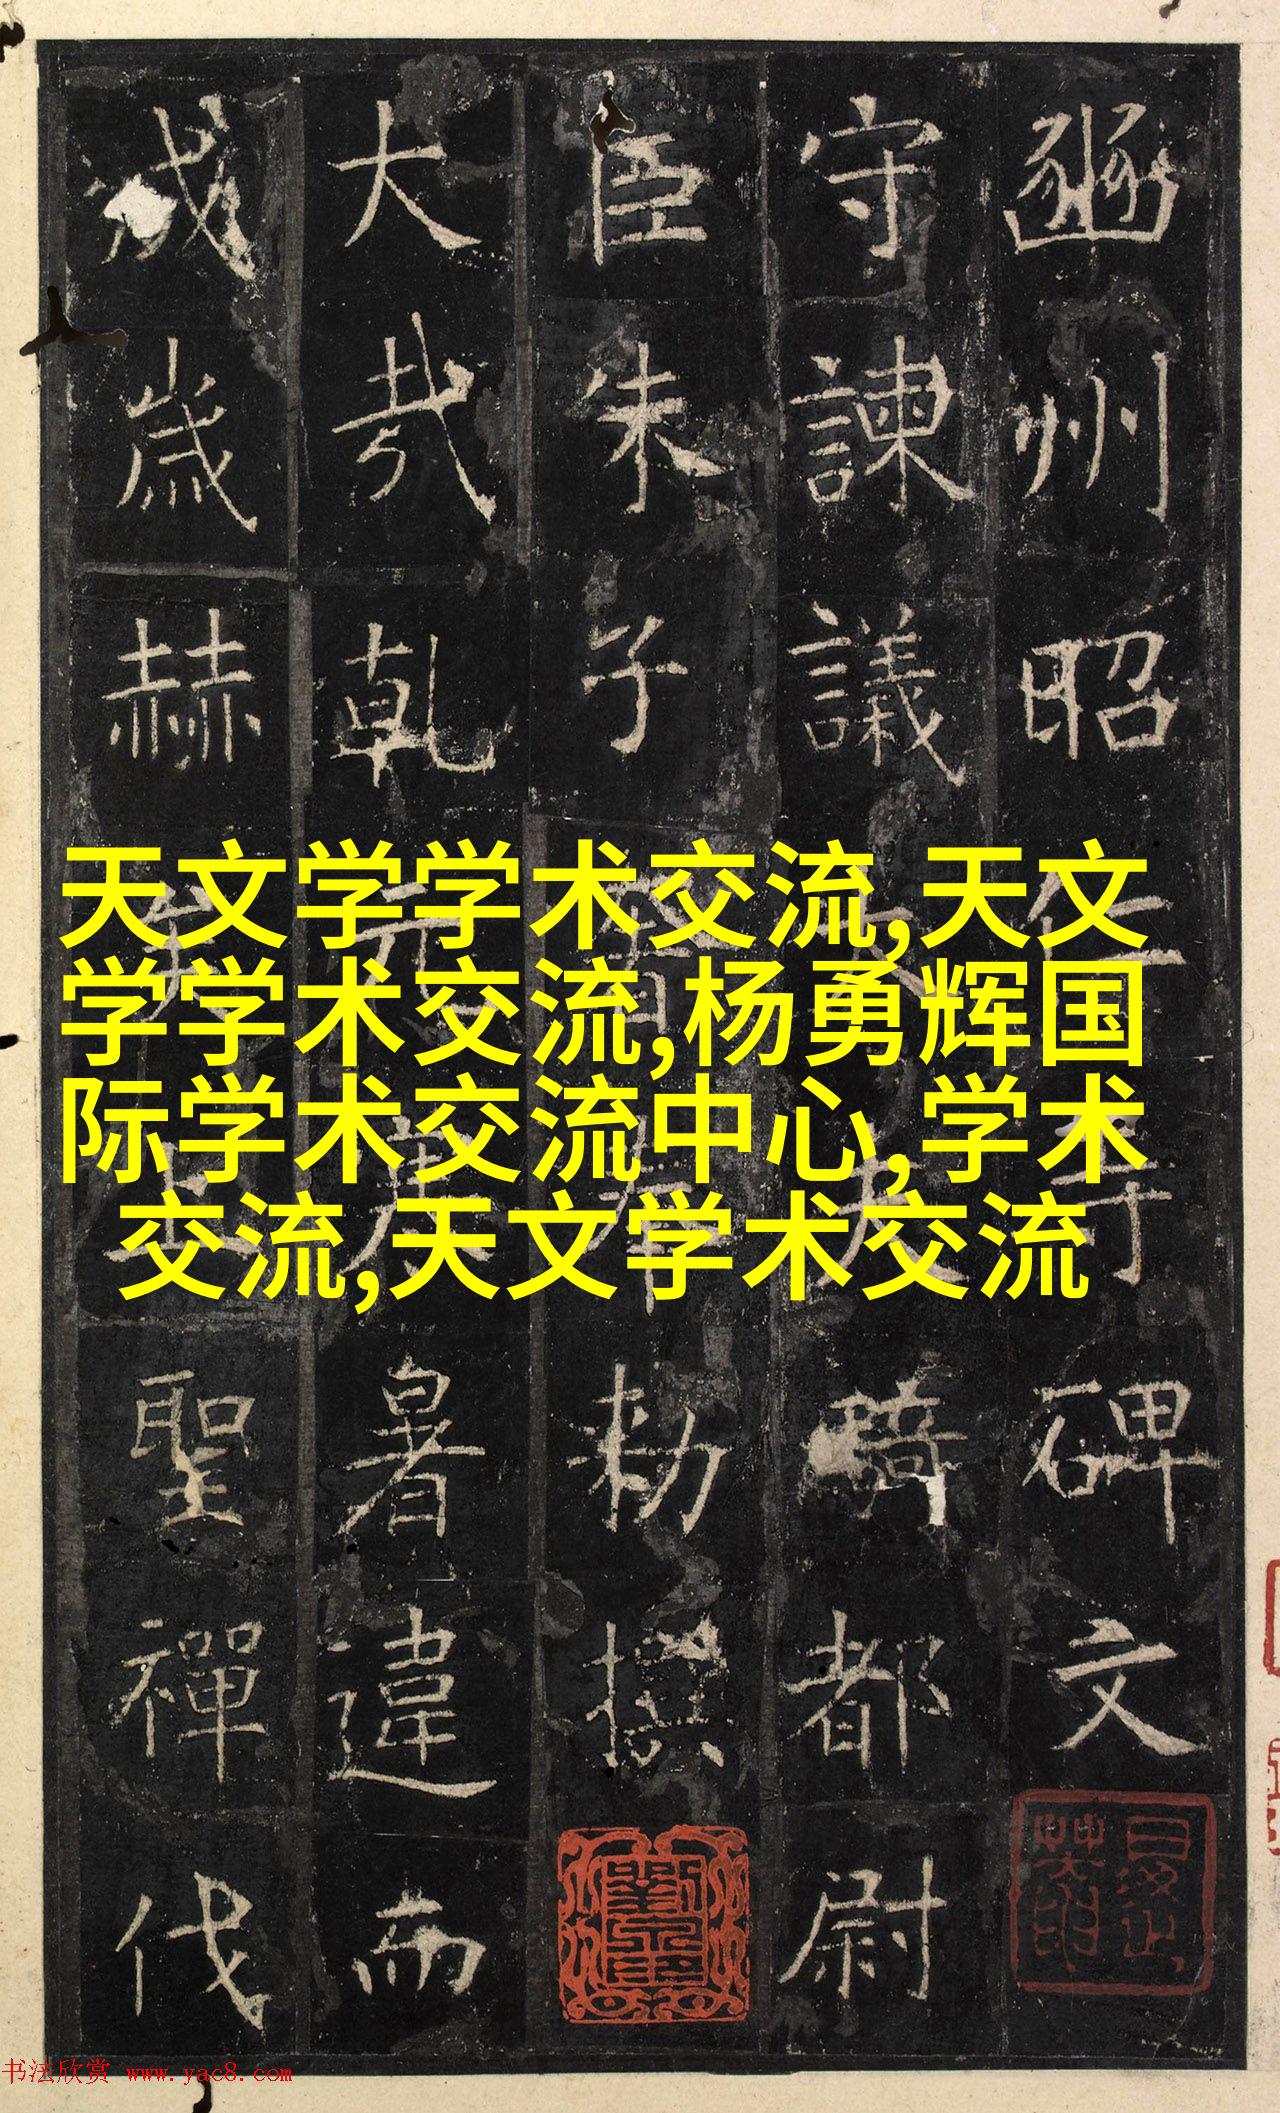 豳州昭仁寺碑文
守諫議大夫騎都尉
臣朱子奢奉勑撰
大哉乾元寒暑違而
成歲赫矣上聖禪代
天文学学术交流,天文
学学术交流,杨勇辉国
际学术交流中心,学术
交流,天文学术交流
书法欣赏 www.yac8.com